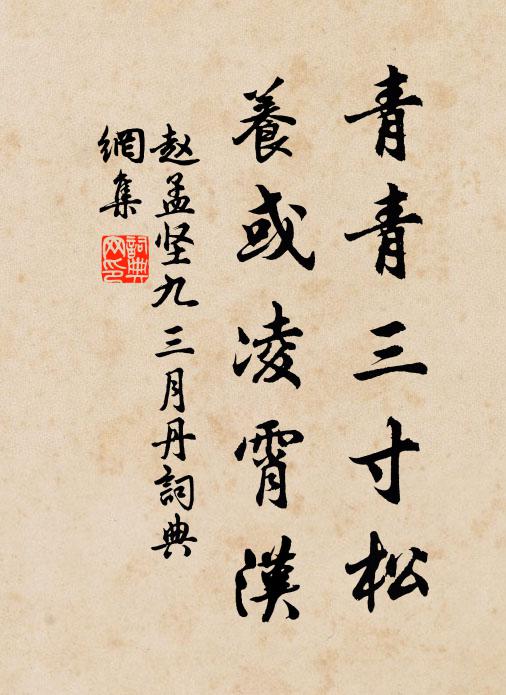 青青三寸松
養或凌霄漢
赵孟坚九三月丹詞典
網集
詞典
网印